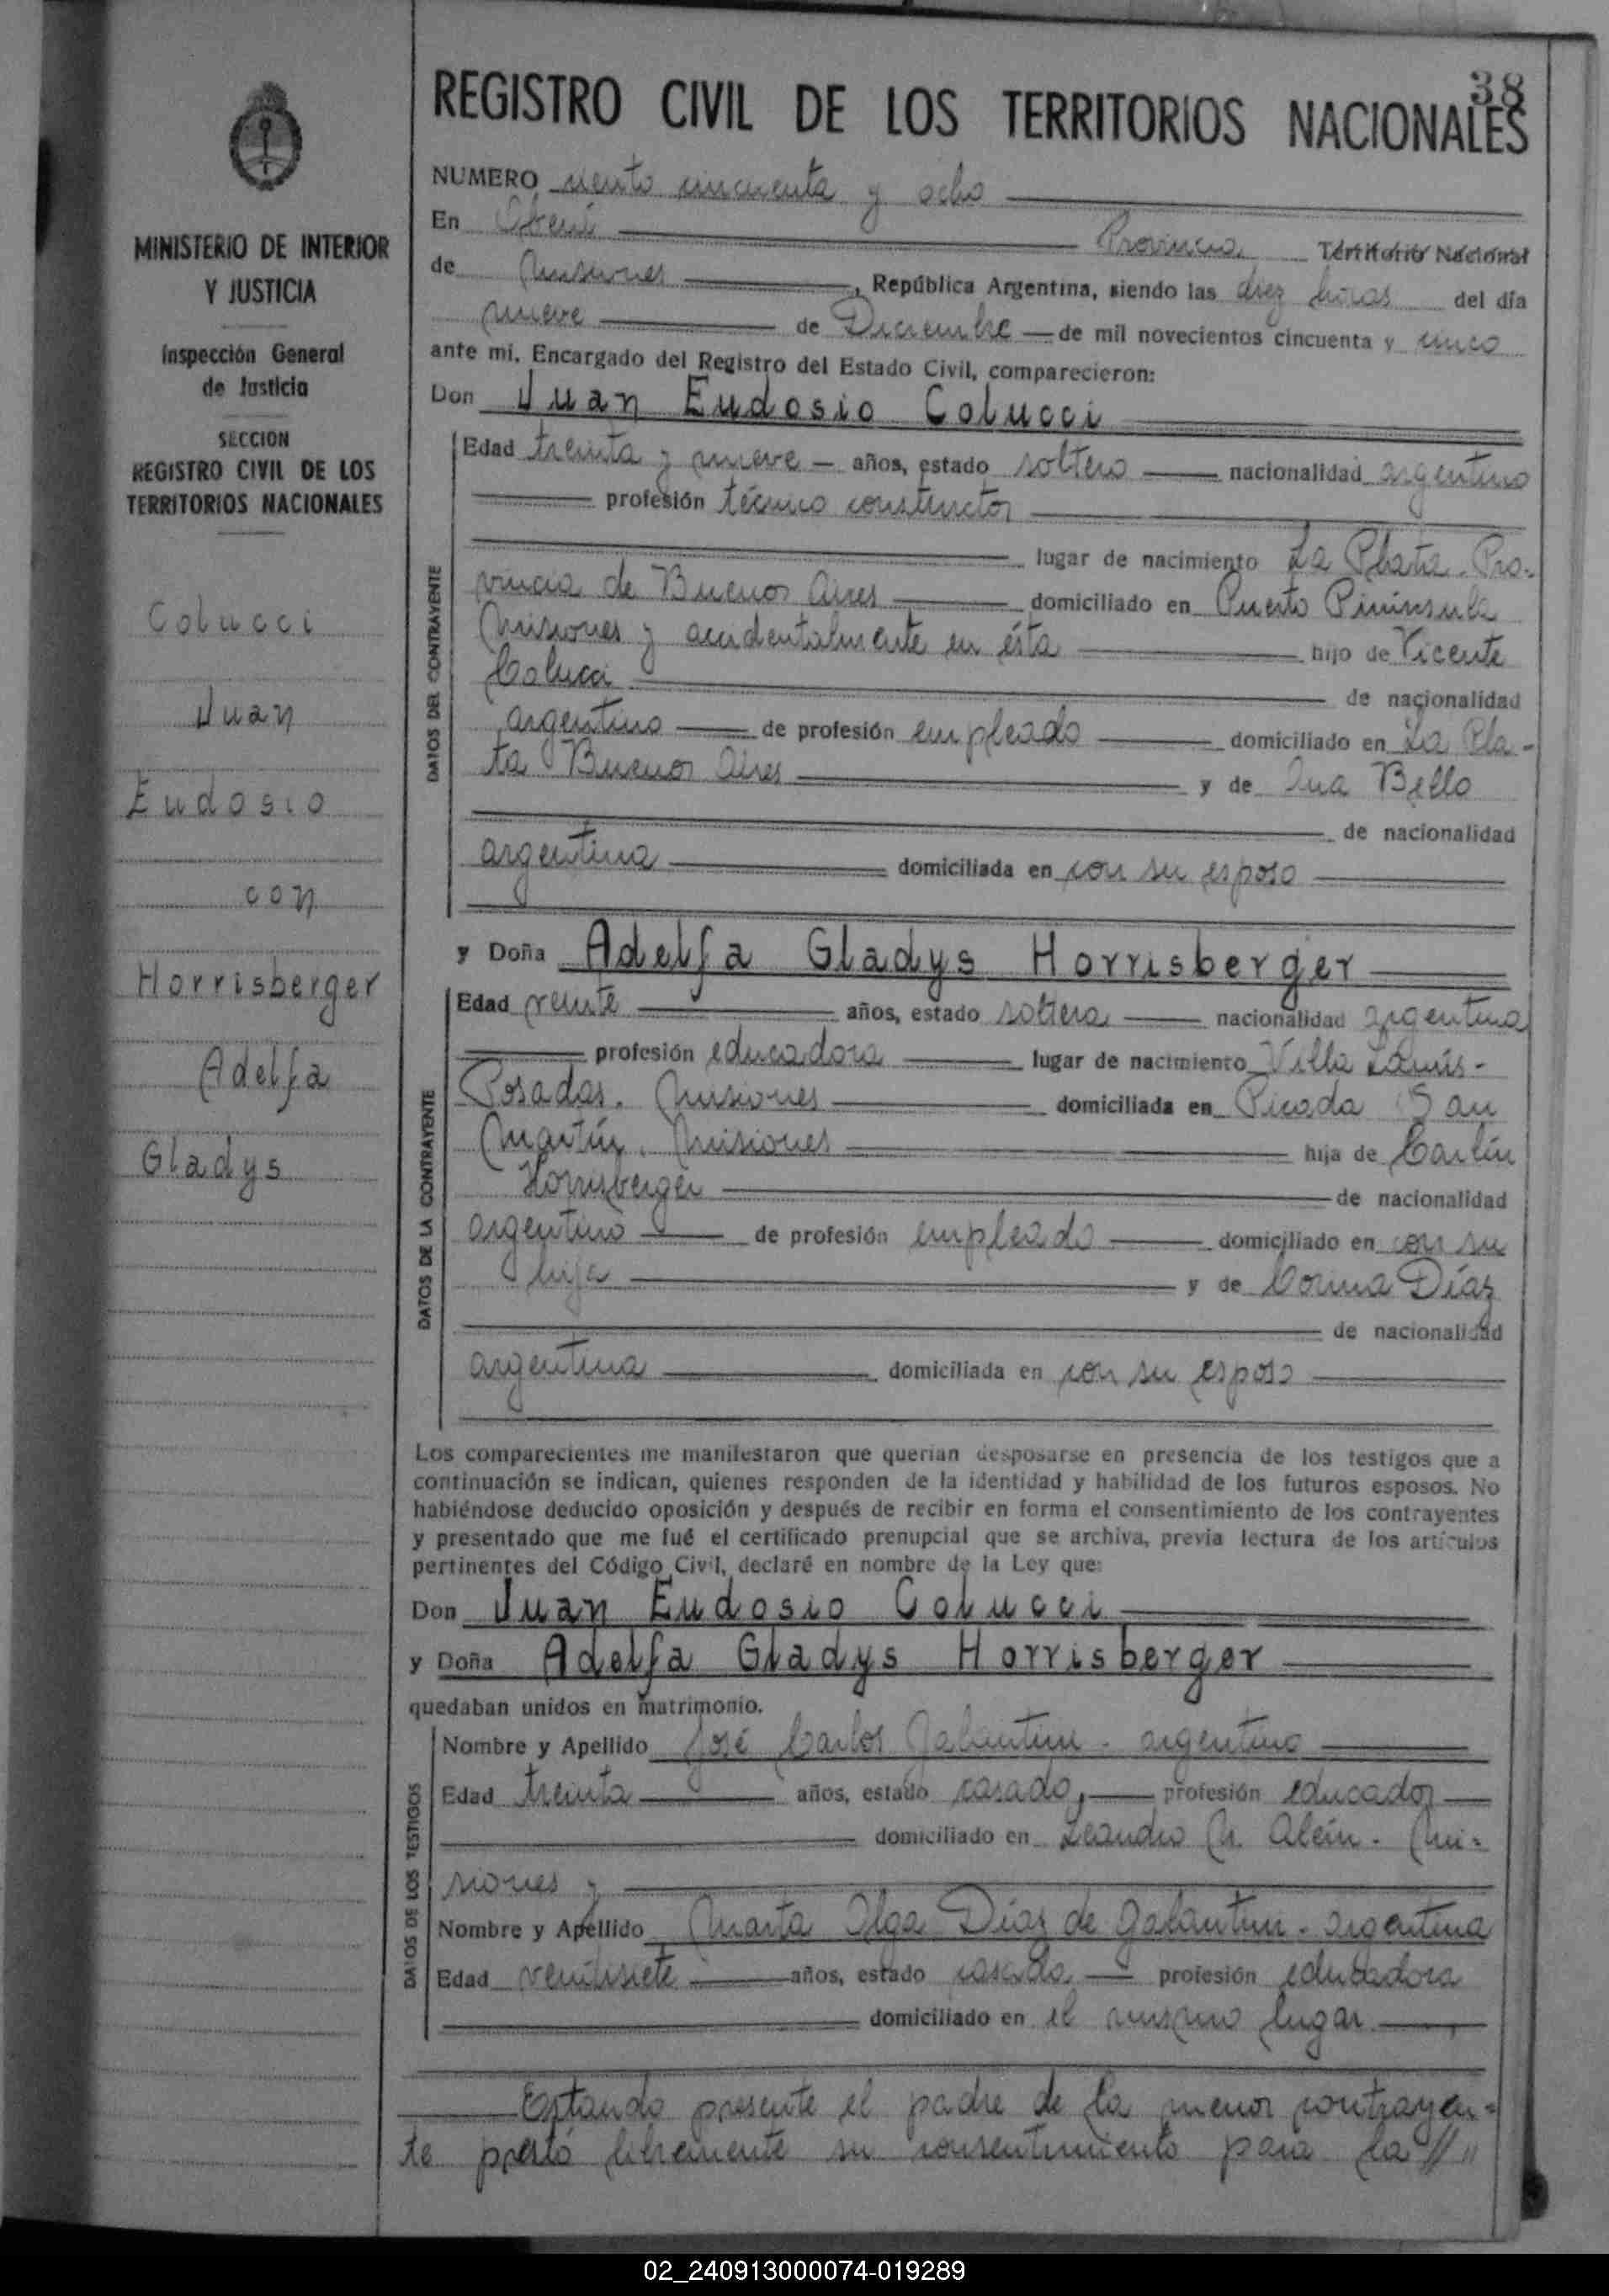 38
REGISTRO CIVIL DE LOS TERRITORIOS NACIONALES
MINISTERIO DE INTERIOR
Y JUSTICIA
Inspección General
de Justicia
SECCION
REGISTRO CIVIL DE LOS
TERRITORIOS NACIONALES
Colucci
Juan
Eudosio
con
Horrisberger
Adelfa
Gladys
NUMERO ciento cincuenta y ocho
En Oberá Provincia Territorio Nacional
de Misiones, República Argentina, siendo las diez horas del día
nueve de Diciembre de mil novecientos cincuenta y cinco
ante mi, Encargado del Registro del Estado Civil, comparecieron:
Don Juan Eudosio Colucci
DATOS DEL CONTRAYENTE
Edad treinta y nueve años, estado soltero nacionalidad argentino
profesión técnico constructor
lugar de nacimiento La Plata. Pro-
vincia de Buenos Aires domiciliado en Puerto Pinínsula
Misiones y accidentalmente en ésta hijo de Vicente
Colucci de nacionalidad
argentino de profesión empleado domiciliado en La Pla-
ta Buenos Aires y de Ana Bello
de nacionalidad
argentina domiciliada en con su esposo
y Doña Adelfa Gladys Horrisberger
DATOS DE LA CONTRAYENTE
Edad veinte años, estado soltera nacionalidad argentina
profesión educadora lugar de nacimiento Villa Lanús-
Posadas. Misiones domiciliada en Picada San
Martín. Misiones hija de Carlín
Horrisberger de nacionalidad
argentino de profesión empleado domiciliado en con su
hija y de Corina Díaz
de nacionalidad
argentina domiciliada en con su esposo
Los comparecientes me manifestaron que querían desposarse en presencia de los testigos que a
continuación se indican, quienes responden de la identidad y habilidad de los futuros esposos. No
habiéndose deducido oposición y después de recibir en forma el consentimiento de los contrayentes
y presentado que me fué el certificado prenupcial que se archiva, previa lectura de los artículos
pertinentes del Código Civil, declaré en nombre de la Ley que:
Don Juan Eudosio Colucci
y Doña Adelfa Gladys Horrisberger
quedaban unidos en matrimonio.
DATOS DE LOS TESTIGOS
Nombre y Apellido José Carlos Galantini - argentino
Edad treinta años, estado casado, profesión educador
domiciliado en Leandro N. Alem. Mi-
siones y
Nombre y Apellido Marta Olga Díaz de Galantini - argentina
Edad veintisiete años, estado casada profesión educadora
domiciliado en el mismo lugar
Estando presente el padre de la menor contrayen-
te prestó libremente su consentimiento para la //"
02_240913000074-019289